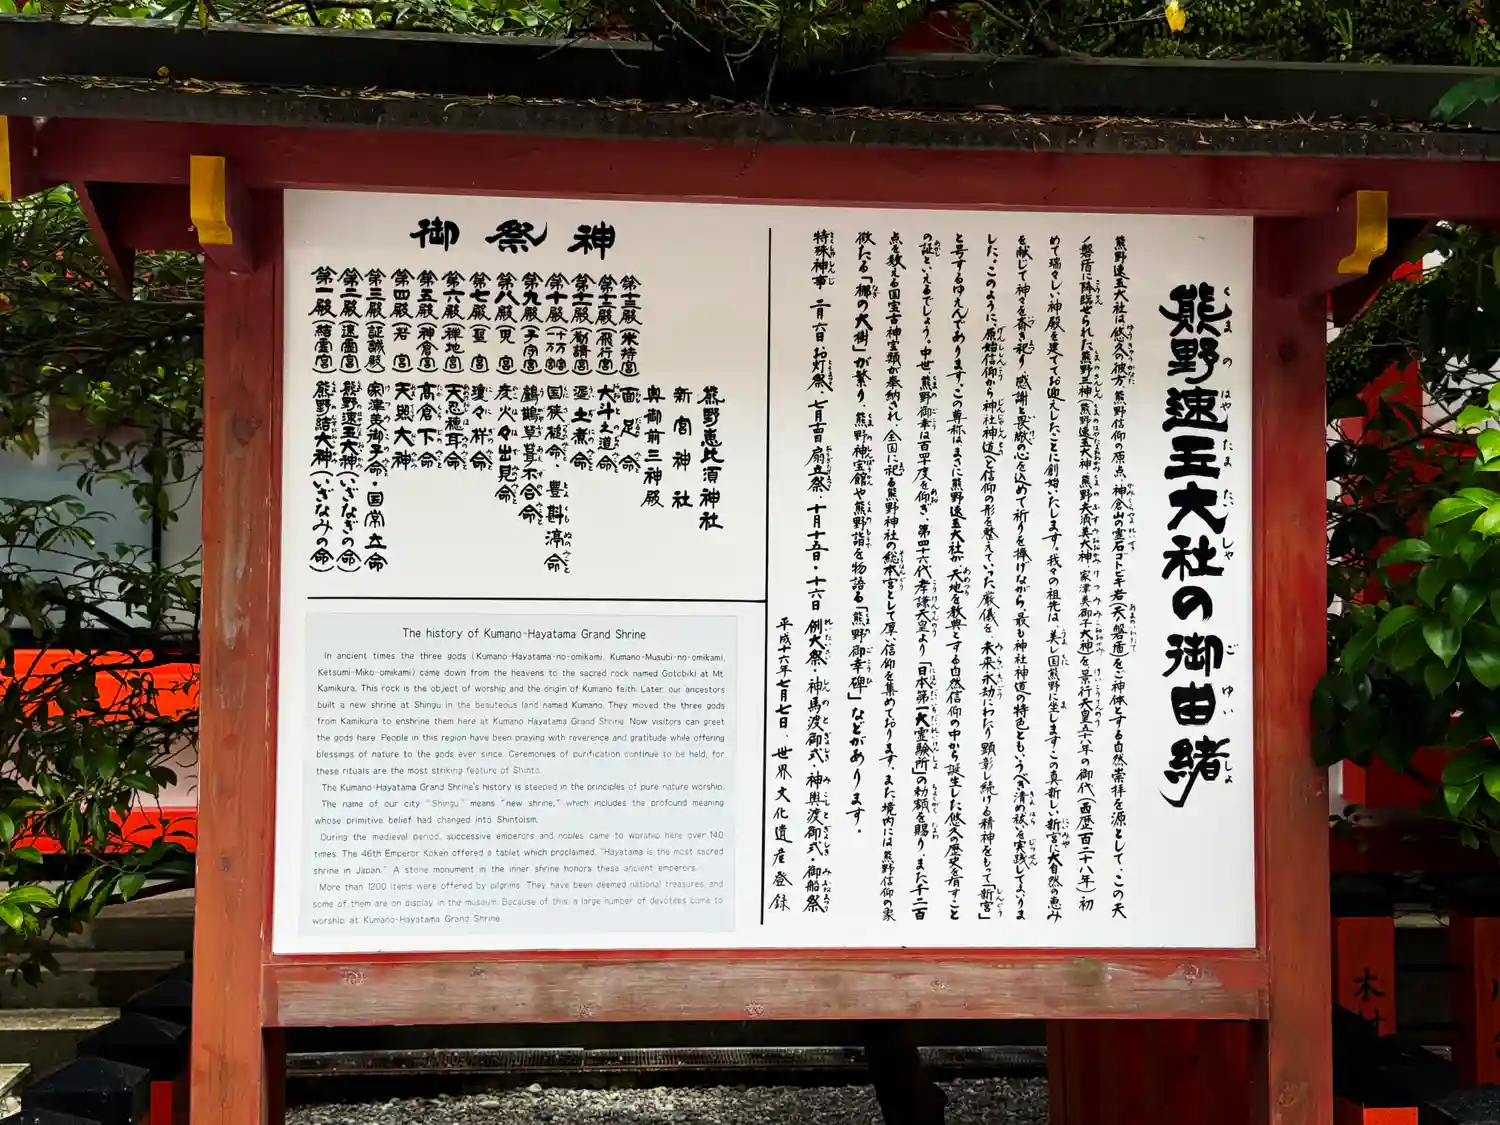 熊野速玉大社の御由緒
くまのはやたまたいしゃのごゆいしょ
熊野速玉大社は悠久の彼方、熊野信仰の原点、神倉山の霊石ゴトビキ岩(天ノ磐盾)をご神体とする自然崇拝を源として、この天
ノ磐盾に降臨せられた熊野三神(熊野速玉大神・熊野夫須美大神・家津美御子大神)を景行天皇五十八年の御代(西暦百二十八年)初
めて瑞々しい神殿を建ててお迎えしたことに創始いたします。我々の祖先は、美し国熊野に坐しますこの真新しい新宮に大自然の恵み
を献じて神々を斎き祀り、感謝と畏敬の心を込めて祈りを捧げながら、最も神社神道の特色ともいうべき清め祓いを実践してまいりま
した。このように、原始信仰から神社神道へと信仰の形を整えていった厳儀を、未来永劫にわたり顕彰し続ける精神をもって「新宮」
と号するゆえんであります。この尊称は、まさに熊野速玉大社が、天地を教典とする自然信仰の中から誕生した悠久の歴史を有すこと
の証といえるでしょう。中世、熊野御幸は百四十度を仰ぎ、第四十六代孝謙天皇より「日本第一大霊験所」の勅額を賜り、また千二百
点を数える国宝古神宝類が奉納され、全国に祀る熊野神社の総本宮として厚い信仰を集めております。また境内には熊野信仰の象
徴たる「梛の大樹」が繁り、熊野神宝館や熊野詣を物語る「熊野御幸碑」などがあります。
特殊神事 二月六日 お灯祭、七月十四日 扇立祭、十月十五日・十六日 例大祭・神馬渡御式・神輿渡御式・御船祭
平成十六年七月七日、世界文化遺産登録
御祭神
第一殿(結霊宮) 熊野結大神(いざなみの命)
第二殿(速霊宮) 熊野速玉大神(いざなぎの命)
第三殿(証誠殿) 家津美御子命・国常立命
第四殿(若宮) 天照大神
第五殿(神倉宮) 高倉下命
第六殿(禅地宮) 天忍穂耳命
第七殿(聖宮) 瓊々杵命
第八殿(児宮) 彦火々出見命
第九殿(子守宮) 鸕鶿草葺不合命
第十殿(一万宮・十万宮) 国狭槌命・豊斟渟命
第十一殿(勧請宮) 泥土煮命
第十二殿(飛行宮) 大斗之道命
第十三殿(米持宮) 面足命
奥御前三神殿
新宮神社
熊野恵比須神社
The history of Kumano-Hayatama Grand Shrine
In ancient times the three gods (Kumano-Hayatama-no-omikami, Kumano-Musubi-no-omikami,
Ketsumi-Miko-omikami) came down from the heavens to the sacred rock named Gotobiki at Mt.
Kamikura. This rock is the object of worship and the origin of Kumano faith. Later, our ancestors
built a new shrine at Shingu in the beauteous land named Kumano. They moved the three gods
from Kamikura to enshrine them here at Kumano Hayatama Grand Shrine. Now visitors can greet
the gods here. People in this region have been praying with reverence and gratitude while offering
blessings of nature to the gods ever since. Ceremonies of purification continue to be held, for
these rituals are the most striking feature of Shinto.
The Kumano-Hayatama Grand Shrine's history is steeped in the principles of pure nature worship.
The name of our city "Shingu" means "new shrine," which includes the profound meaning
whose primitive belief had changed into Shintoism.
During the medieval period, successive emperors and nobles came to worship here over 140
times. The 46th Emperor Koken offered a tablet which proclaimed, "Hayatama is the most sacred
shrine in Japan." A stone monument in the inner shrine honors these ancient emperors.
More than 1200 items were offered by pilgrims. They have been deemed national treasures, and
some of them are on display in the museum. Because of this, a large number of devotees come to
worship at Kumano-Hayatama Grand Shrine.